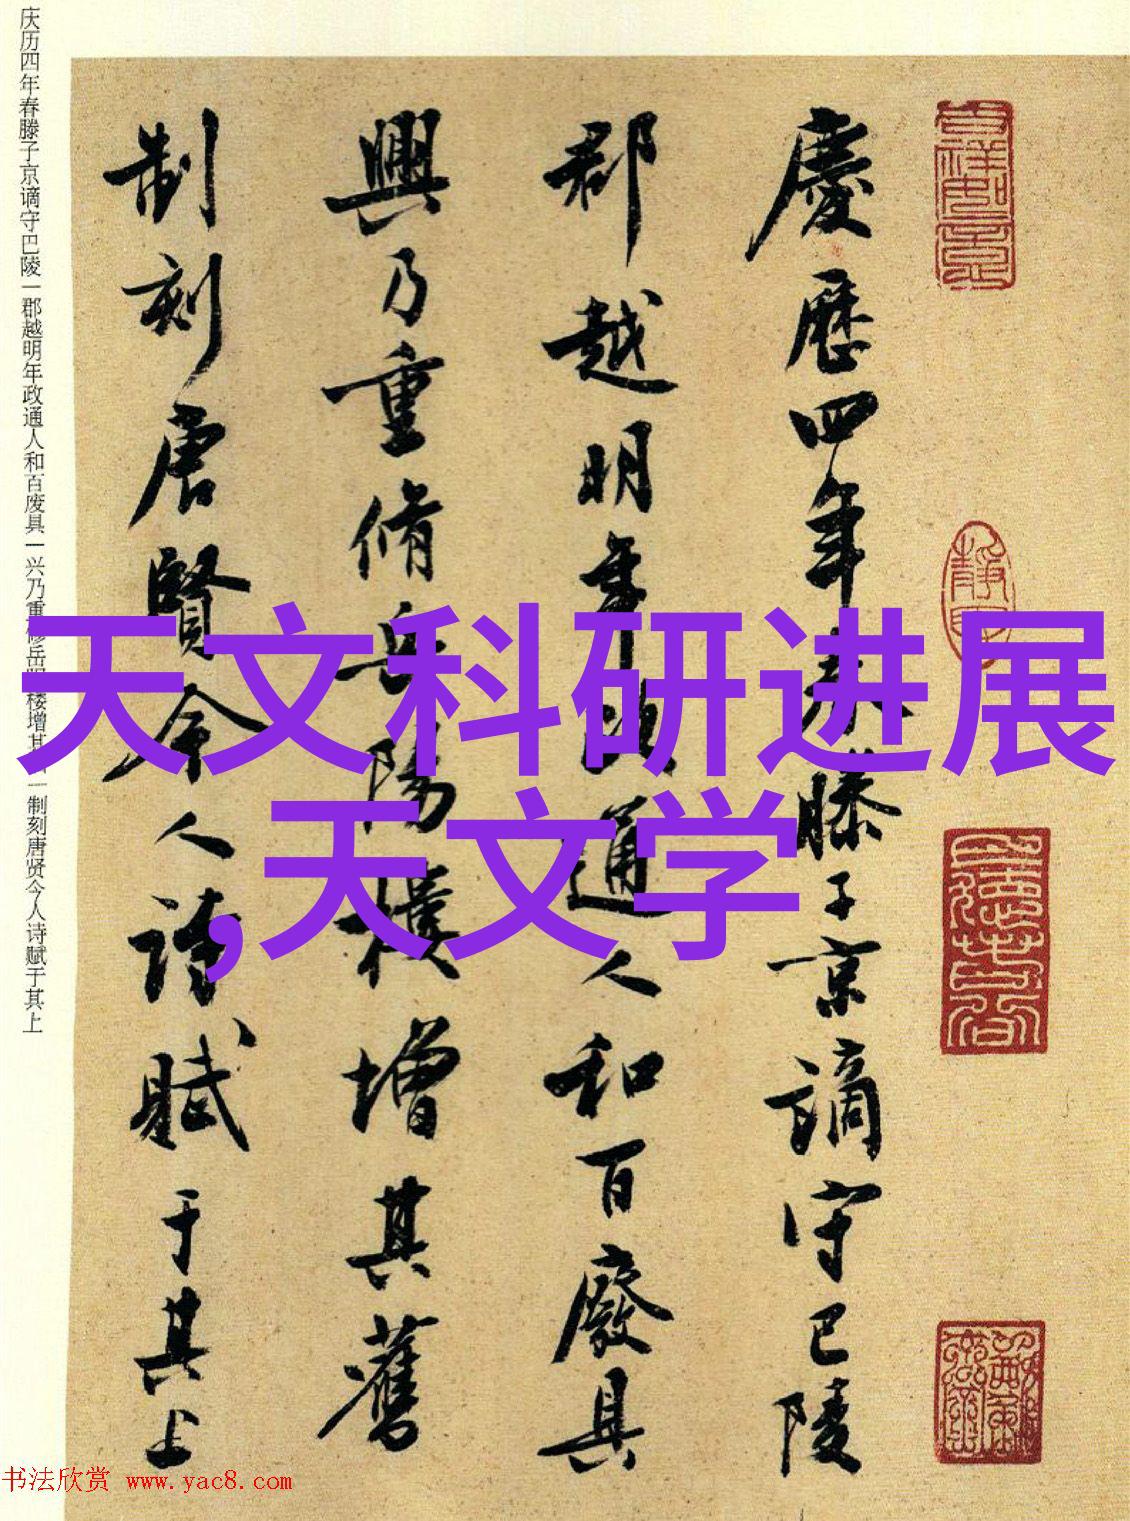 天文科研进展
,天文学
慶歷四年春滕子京謫守巴陵
郡越明年政通人和百廢具
興乃重脩岳陽樓增其舊
制刻唐賢今人詩賦于其上
庆历四年春滕子京谪守巴陵一郡越明年政通人和百废具一兴乃重修岳阳楼增其旧一制刻唐贤今人诗赋于其上
书法欣赏 www.yac8.com